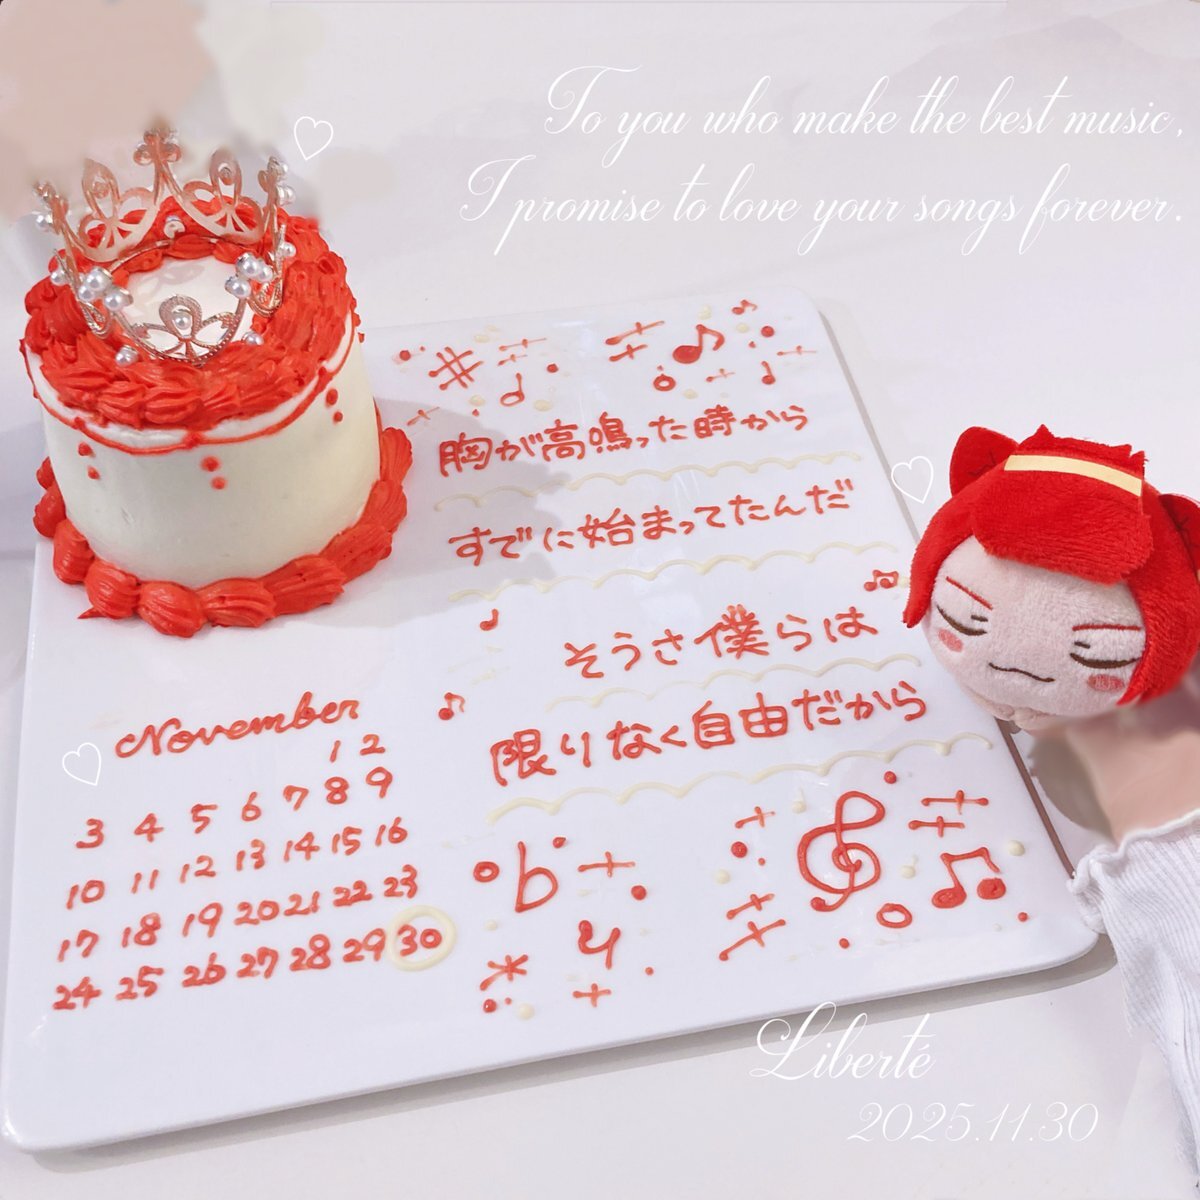 To you who make the best music,
I promise to love your songs forever.
胸が高鳴った時から
すでに始まってたんだ
そうさ僕らは
限りなく自由だから
November
1 2
3 4 5 6 7 8 9
10 11 12 13 14 15 16
17 18 19 20 21 22 23
24 25 26 27 28 29 30
Liberté
2025.11.30